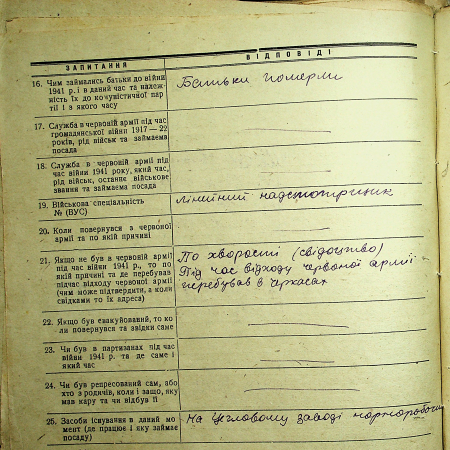 ЗАПИТАННЯ ВІДПОВІДІ
16. Чим займались батьки до війни Батьки померли
1941 р. і в даний час та належ-
ність їх до комуністичної пар-
тії і з якого часу
17. Служба в червоній армії під час
громадянської війни 1917—22
років, рід військ та займаєма
посада
18. Служба в червоній армії під
час війни 1941 року, який час,
рід військ, останнє військове
звання та займаєма посада
19. Військова спеціальність лінейний надсмотрщик
№ (ВУС)
20. Коли повернувся з червоної
армії та по якій причині
21. Якщо не був в червоній армії По хворості (свідоцтво)
під час війни 1941 р., то по Під час відходу червоної армії
якій причині та де перебував перебував в
підчас відходу червоної армії
(чим може підтвердити, а коли
свідками то їх адреса)
22. Якщо був евакуйований, то ко-
ли повернувся та звідки саме
23. Чи був в партизанах під час
війни 1941 р. та де саме і
який час
24. Чи був репресований сам, або
хто з родичів, коли і защо, яку
мав кару та чи відбув її
25. Засоби існування в даний мо- На заводі чорноробочи
мент (де працює і яку займає
посаду)